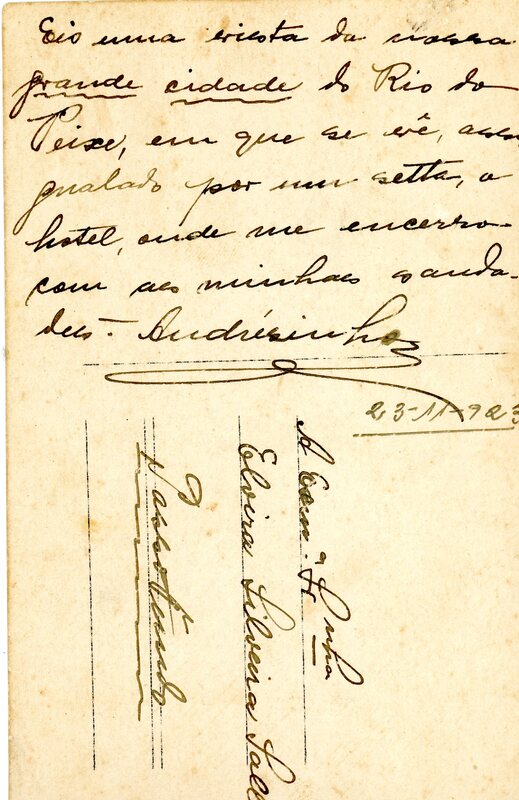 Eis uma vista da nossa
grande cidade do Rio do
Peixe, em que se vê, assi
gnalado por um setta, o
hotel, onde me encerro
com as minhas sauda-
des. Andrésinho
23-11-923
A Exmª. Srª Snha
Elvira Silveira
Passo Fundo